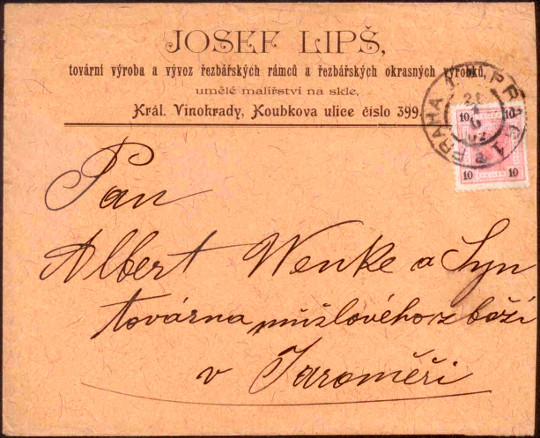 JOSEF LIPŠ,
tovární výroba a vývoz řezbářských rámců a řezbářských okrasných výrobků,
umělé malířství na skle,
Král. Vinohrady, Koubkova ulice číslo 399.
PRAHA 1 PRAG 1
10 10
10 10
Pan
Albert Wenke a Syn
továrna zboží
v Jaroměři